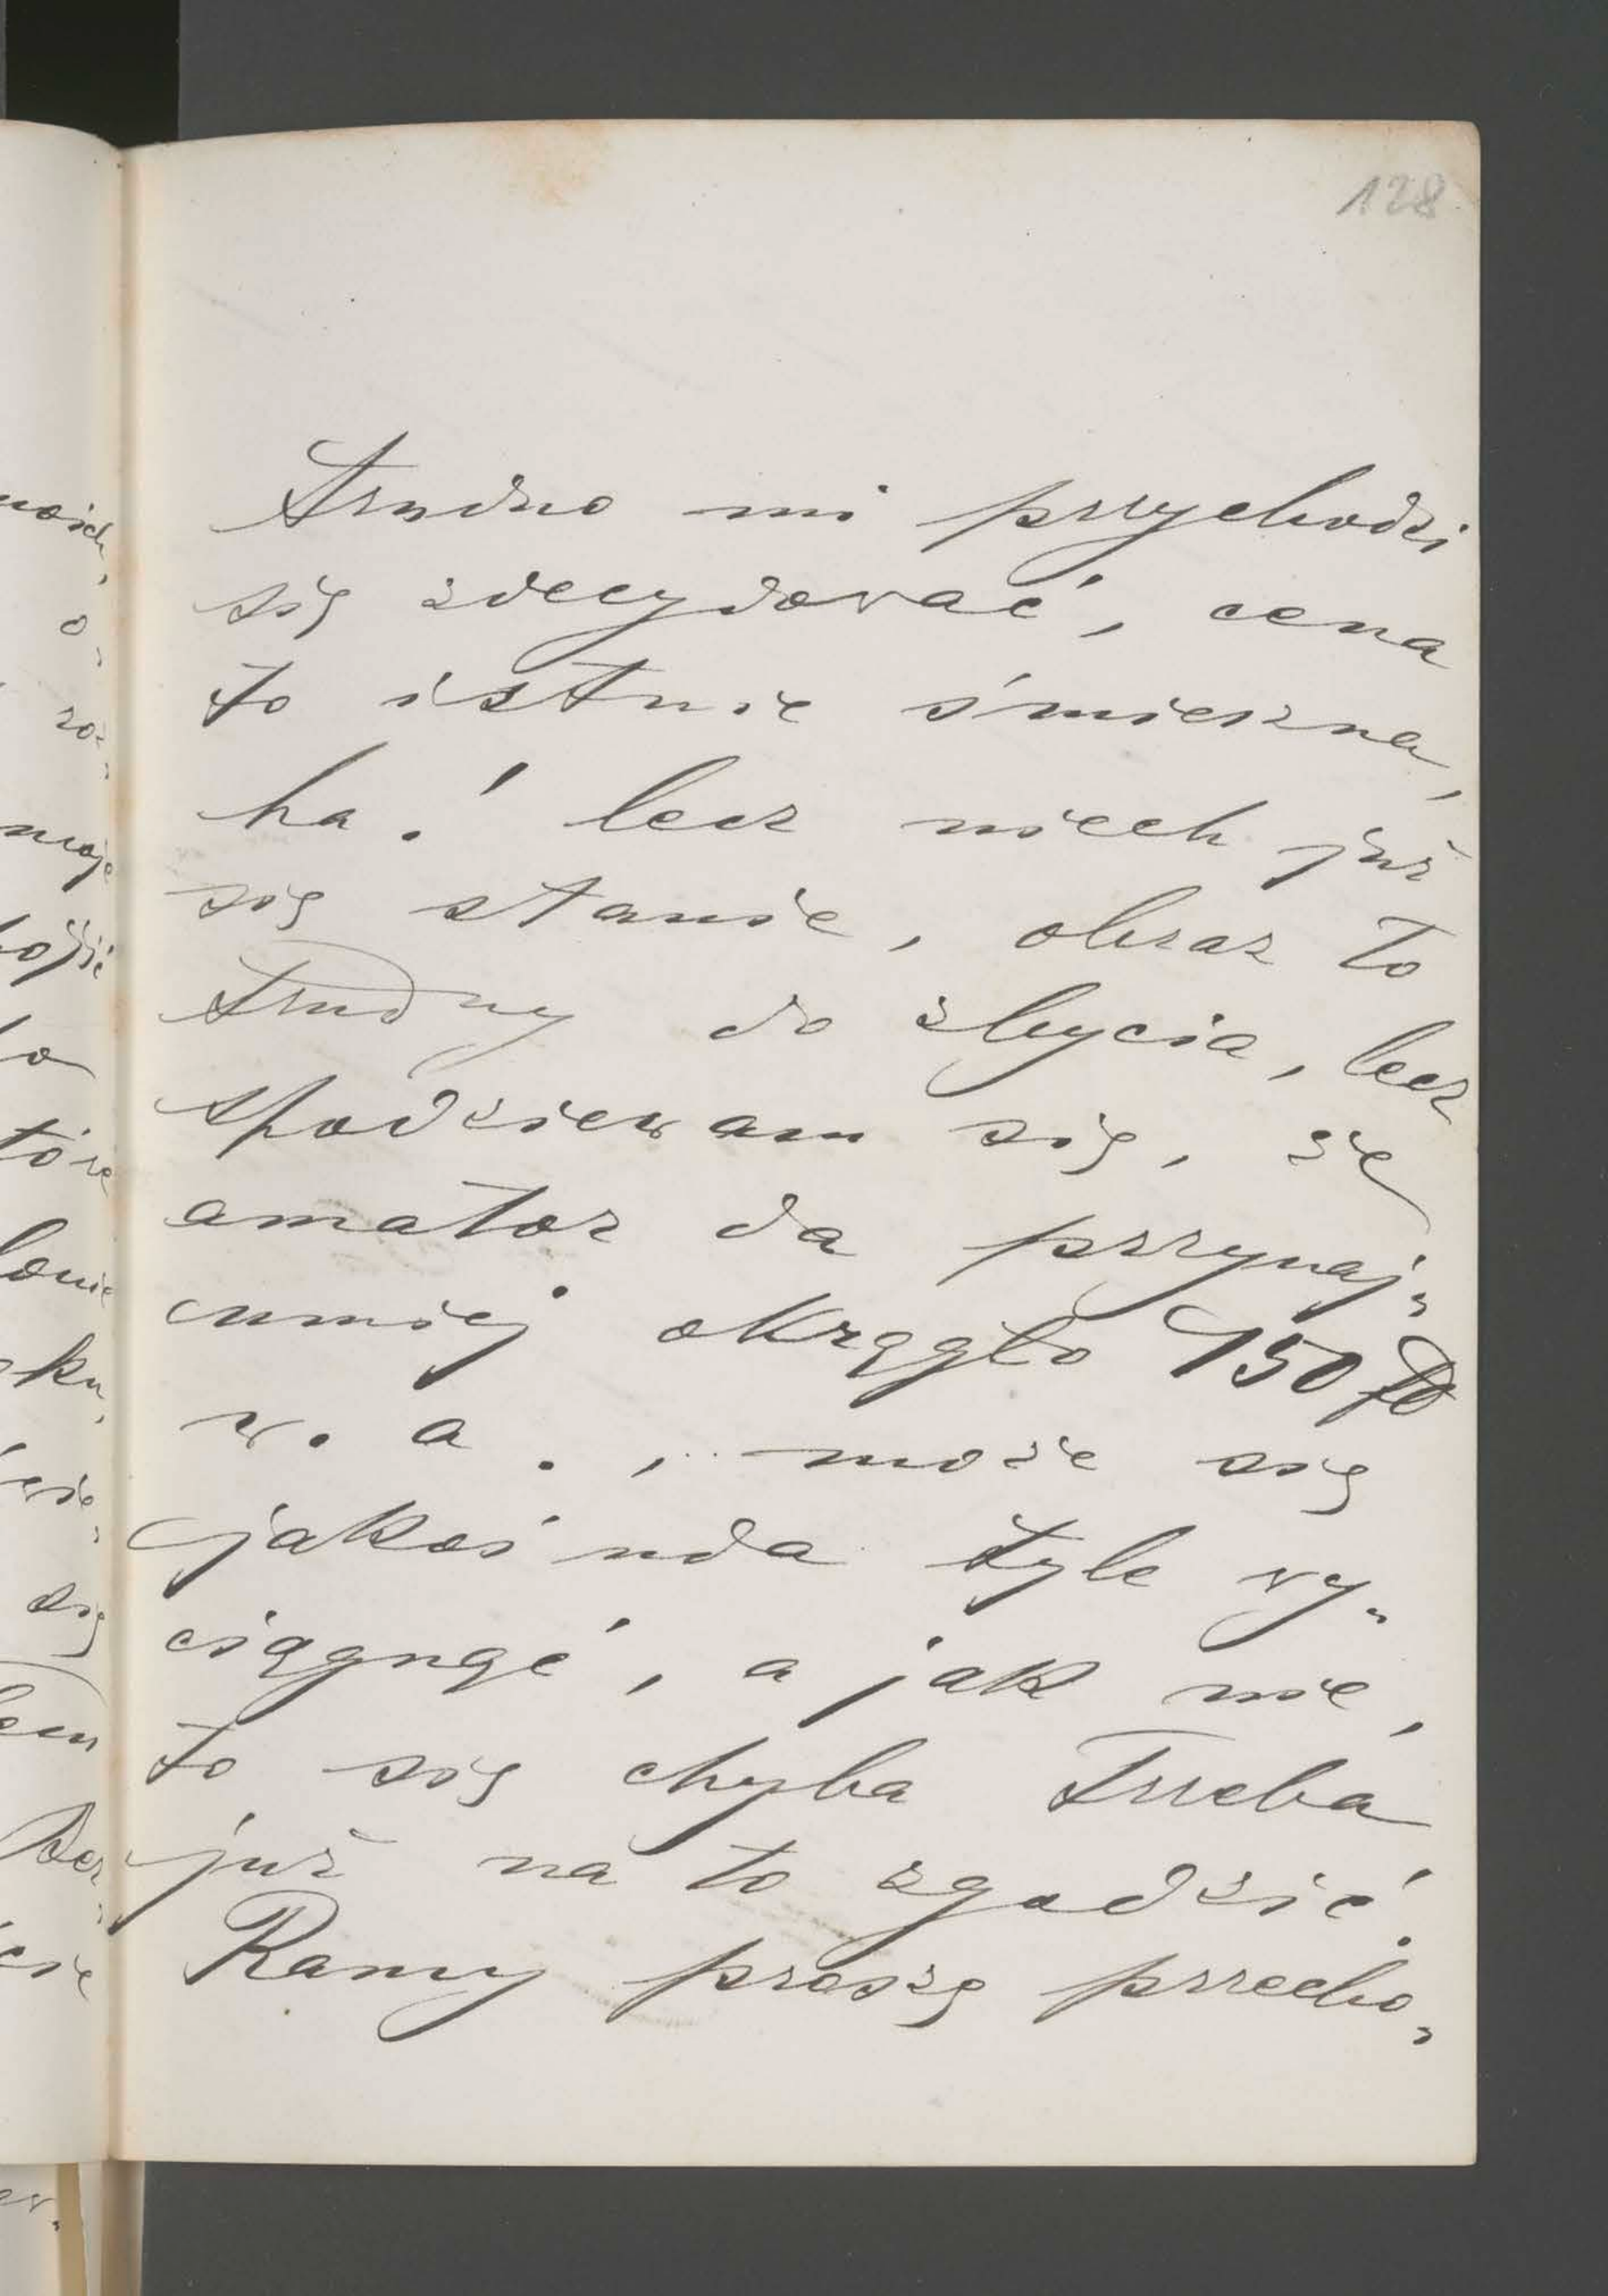 128
Trudno mi przychodzi
się zdecydować, cena
to istnie śmieszna,
ha! lecz niech już
się stanie, obraz to
trudny do zbycia, lecz
spodziewam się, że
amator da przynaj„
mniej okrągło 150 fl
w. a., może się
jakoś uda tyle wy„
ciągnąć, a jak nie,
to się chyba trzeba
już na to zgodzić.
Ramy proszę przecho„